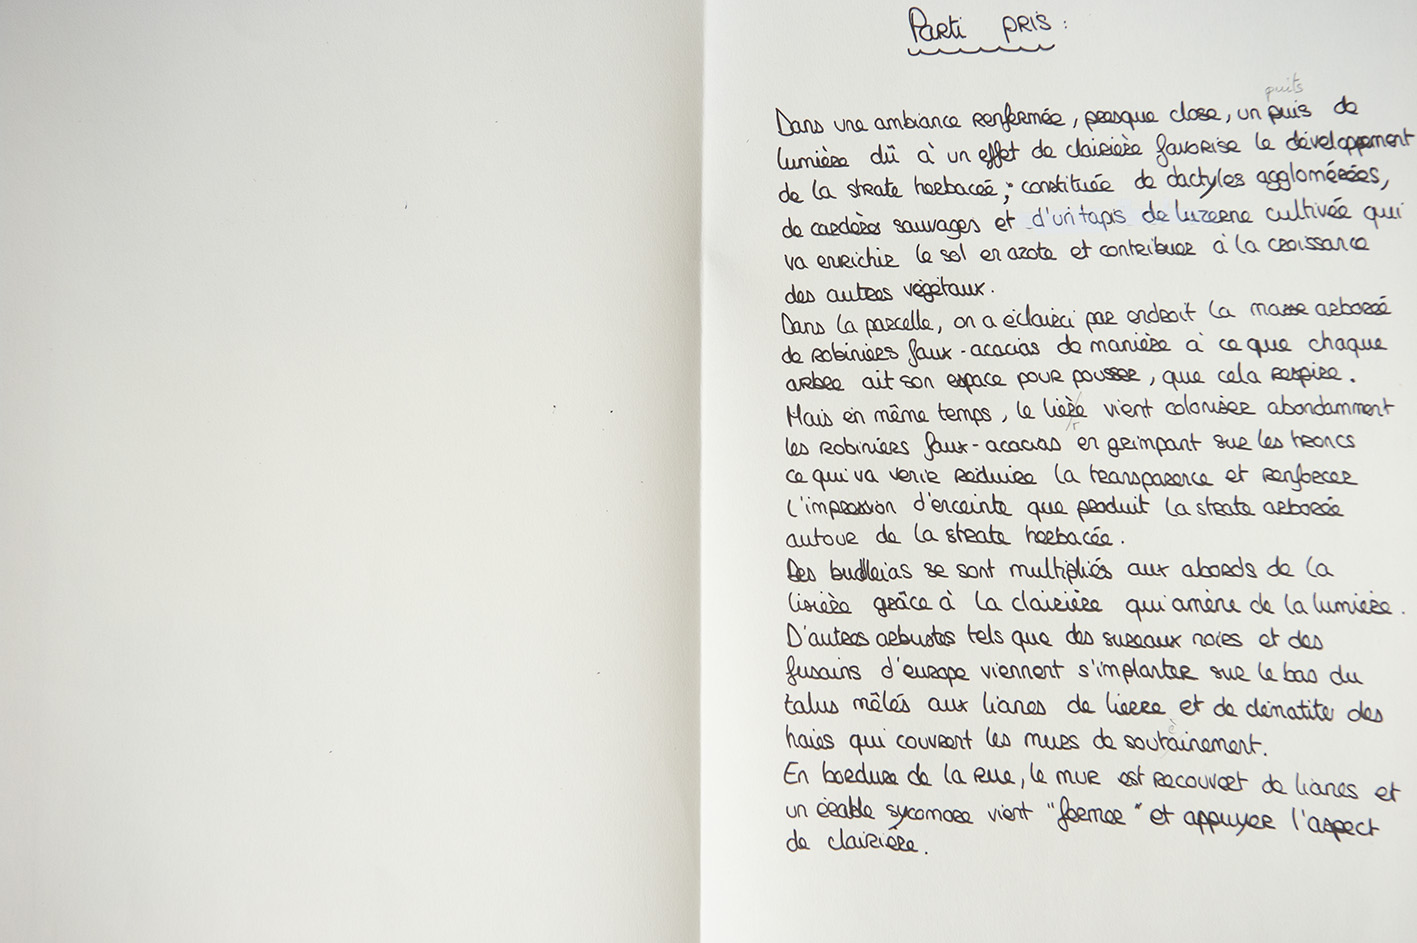 Parti pris :
puits
Dans une ambiance renfermée, presque close, un puis de
lumière dû à un effet de clairière favorise le développement
de la strate herbacée ; constituée de dactyles agglomérées,
de cardères sauvages et d'un tapis de luzerne cultivée qui
va enrichir le sol en azote et contribuer à la croissance
des autres végétaux.
Dans la parcelle, on a éclairci par endroit la masse arborée
de robiniers faux-acacias de manière à ce que chaque
arbre ait son espace pour pousser, que cela respire.
Mais en même temps, le lière vient coloniser abondamment
r
les robiniers faux-acacias en grimpant sur les troncs
ce qui va venir réduire la transparence et renforcer
l'impression d'enceinte que produit la strate arborée
autour de la strate herbacée.
Des budleias se sont multipliés aux abords de la
lisière grâce à la clairière qui amène de la lumière.
D'autres arbustes tels que des sureaux noirs et des
fusains d'europe viennent s'implanter sur le bas du
talus mêlés aux lianes de lierre et de clématite des
haies qui couvrent les murs de soutainement.
è
En bordure de la rue, le mur est recouvert de lianes et
un érable sycomore vient "fermer" et appuyer l'aspect
de clairière.